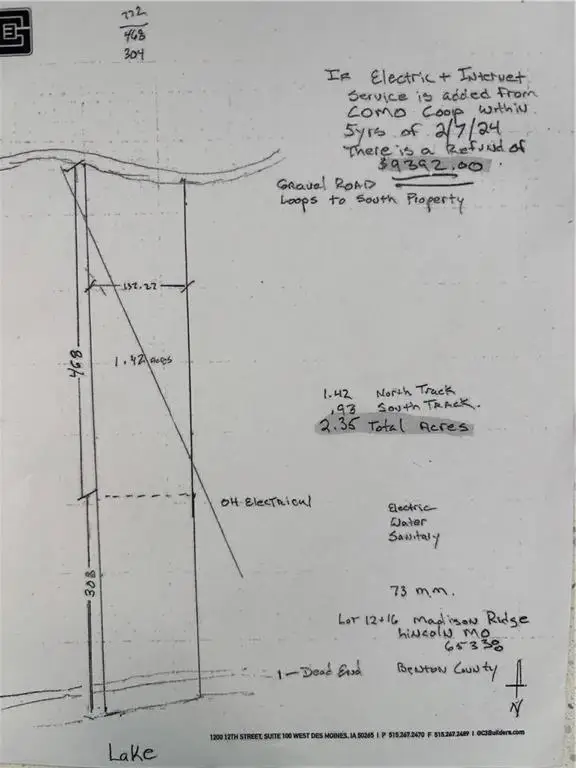 772
468
304
If Electric + Internet
Service is added from
COMO Coop within
5yrs of 2/7/24
There is a Refund of
$9392.00
Gravel Road
Loops to South Property
132.22
468
1.42 Acres
1.42 North Track
.93 South Track.
2.35 Total Acres
OH Electrical
Electric
Water
Sanitary
308
73 m.m.
Lot 12+16 Madison Ridge
Lincoln MO
65338
Benton County
1 - Dead End
N
1200 12TH STREET, SUITE 100 WEST DES MOINES, IA 50265 I P 515.267.2470 F 515.267.2489 I GC3Builders.com
Lake